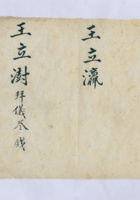 王立瀛
王立澍 拜儀叁錢